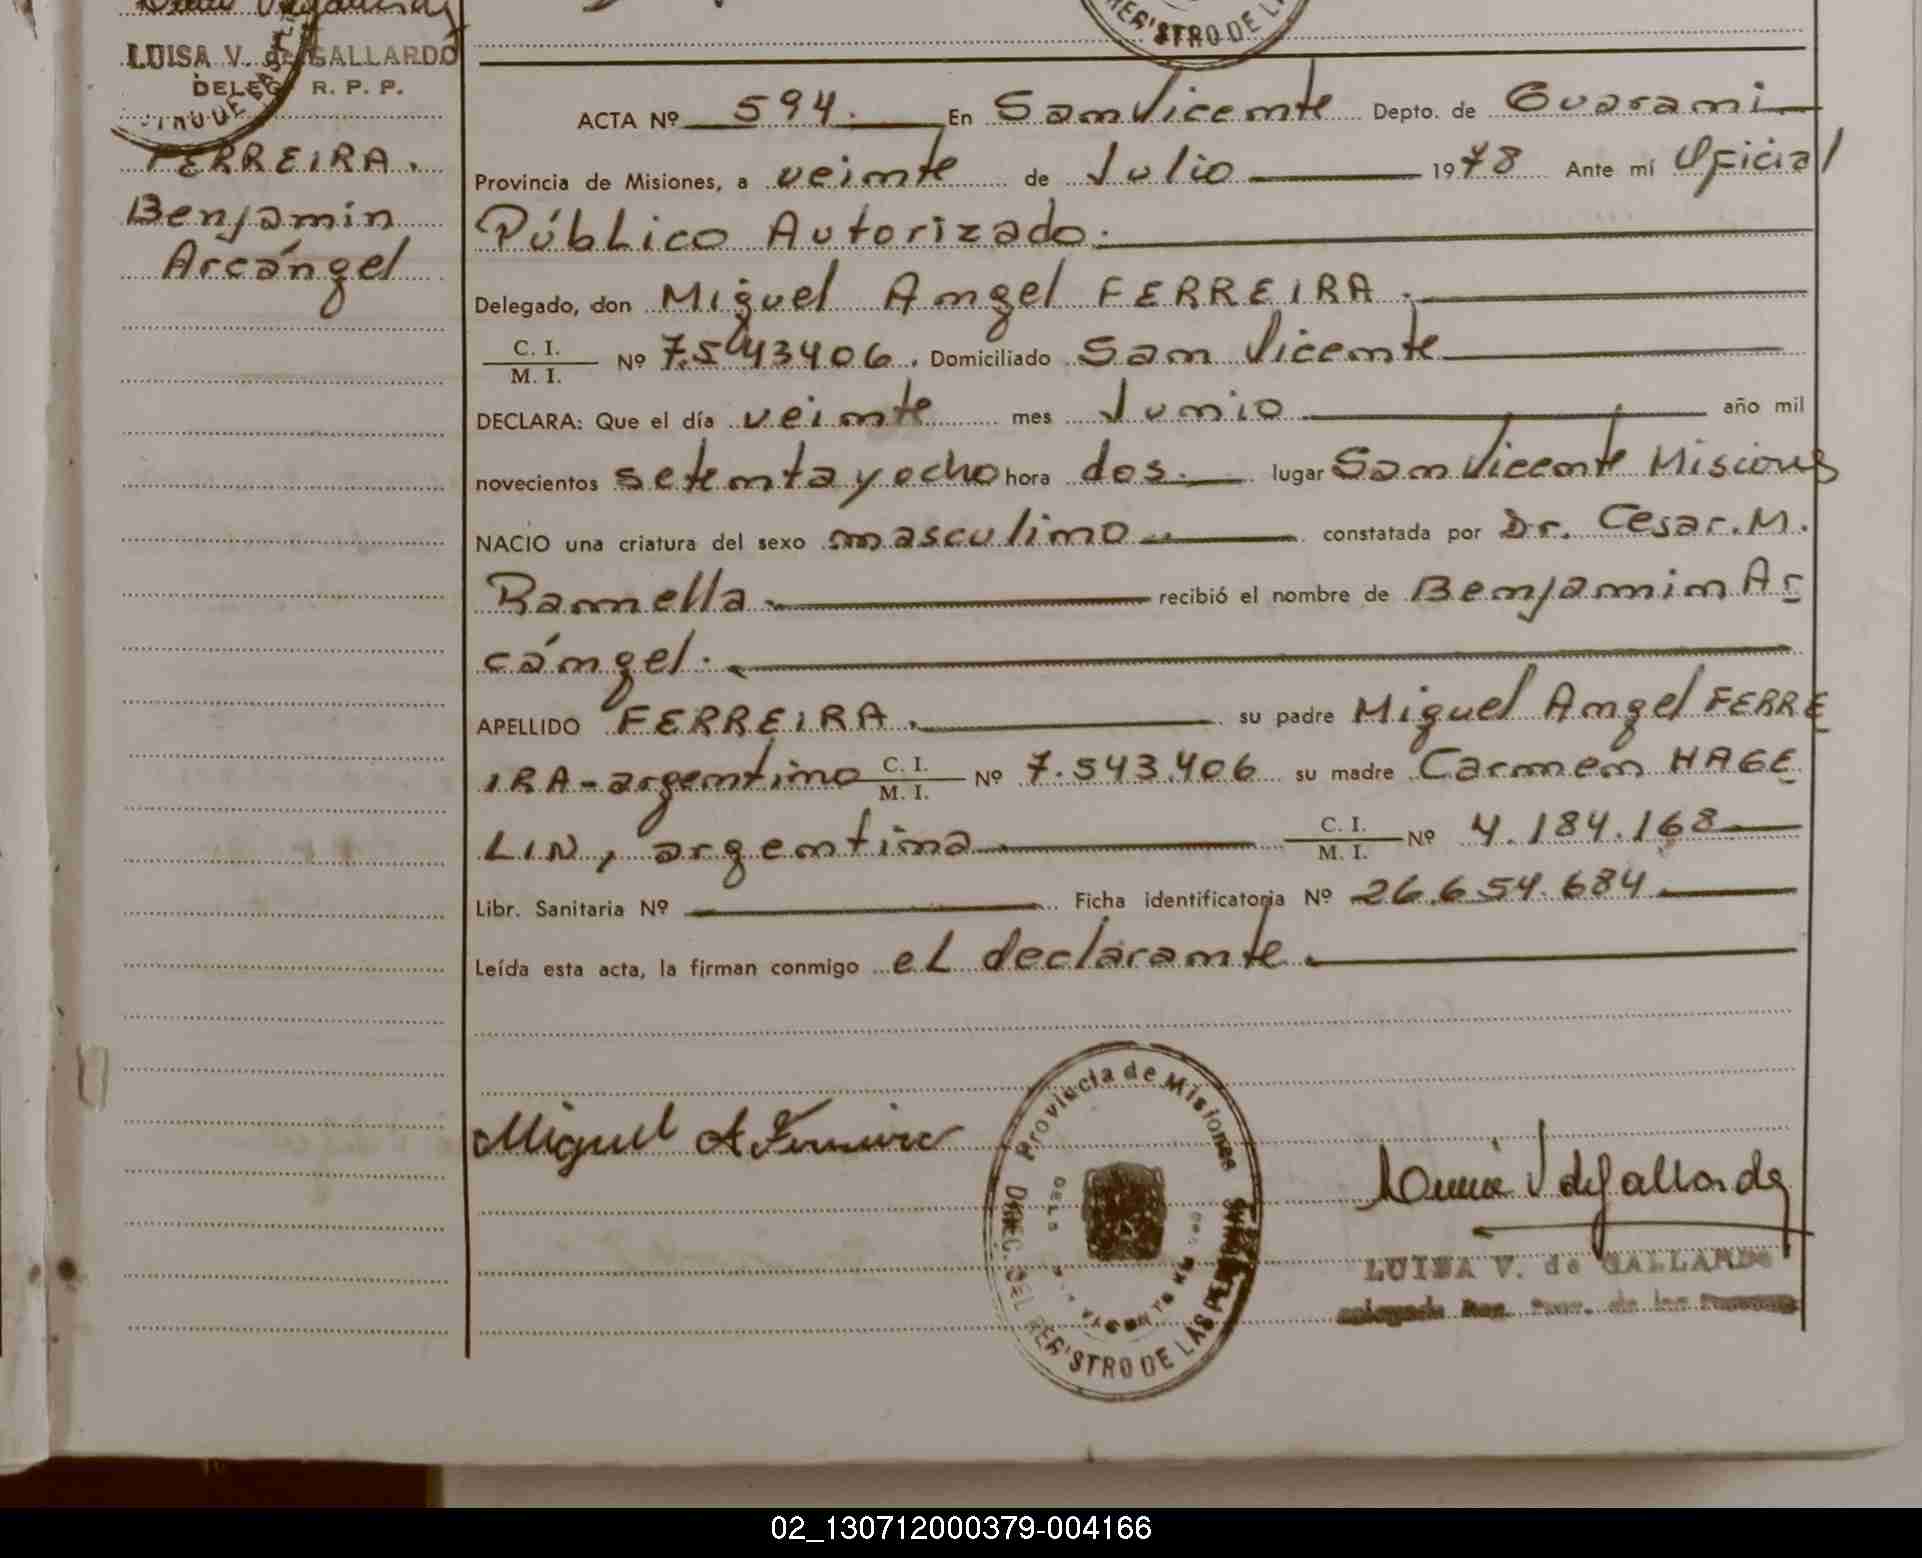 LUISA V. de GALLARDO
DELEG. R. P. P.
REGISTRO DE L
FERREIRA.
Benjamín
Arcángel
ACTA Nº 594. En San Vicente Depto. de Guaraní
Provincia de Misiones, a veinte de Julio 1978 Ante mí Oficial
Público Autorizado.
Delegado, don Miguel Angel FERREIRA.
C. I.
M. I. Nº 7.543406. Domiciliado San Vicente
DECLARA: Que el día veinte mes Junio año mil
novecientos setenta y ocho hora dos. lugar San Vicente Misiones
NACIO una criatura del sexo masculino constatada por Dr. Cesar. M.
Rannella recibió el nombre de Benjamin Ar
cángel.
APELLIDO FERREIRA. su padre Miguel Angel FERRE
IRA - argentino C. I. M. I. Nº 7.543.406 su madre Carmen HAGE
LIN, argentina C. I. M. I. Nº 4.184.168
Libr. Sanitaria Nº Ficha identificatoria Nº 26.654.684
Leída esta acta, la firman conmigo el declarante.
Miguel A Ferreira
Provincia de Misiones
DIREC. DEL REGISTRO DE LAS PERSONAS
Luisa V de Gallardo
LUISA V. de GALLARDO
02_130712000379-004166